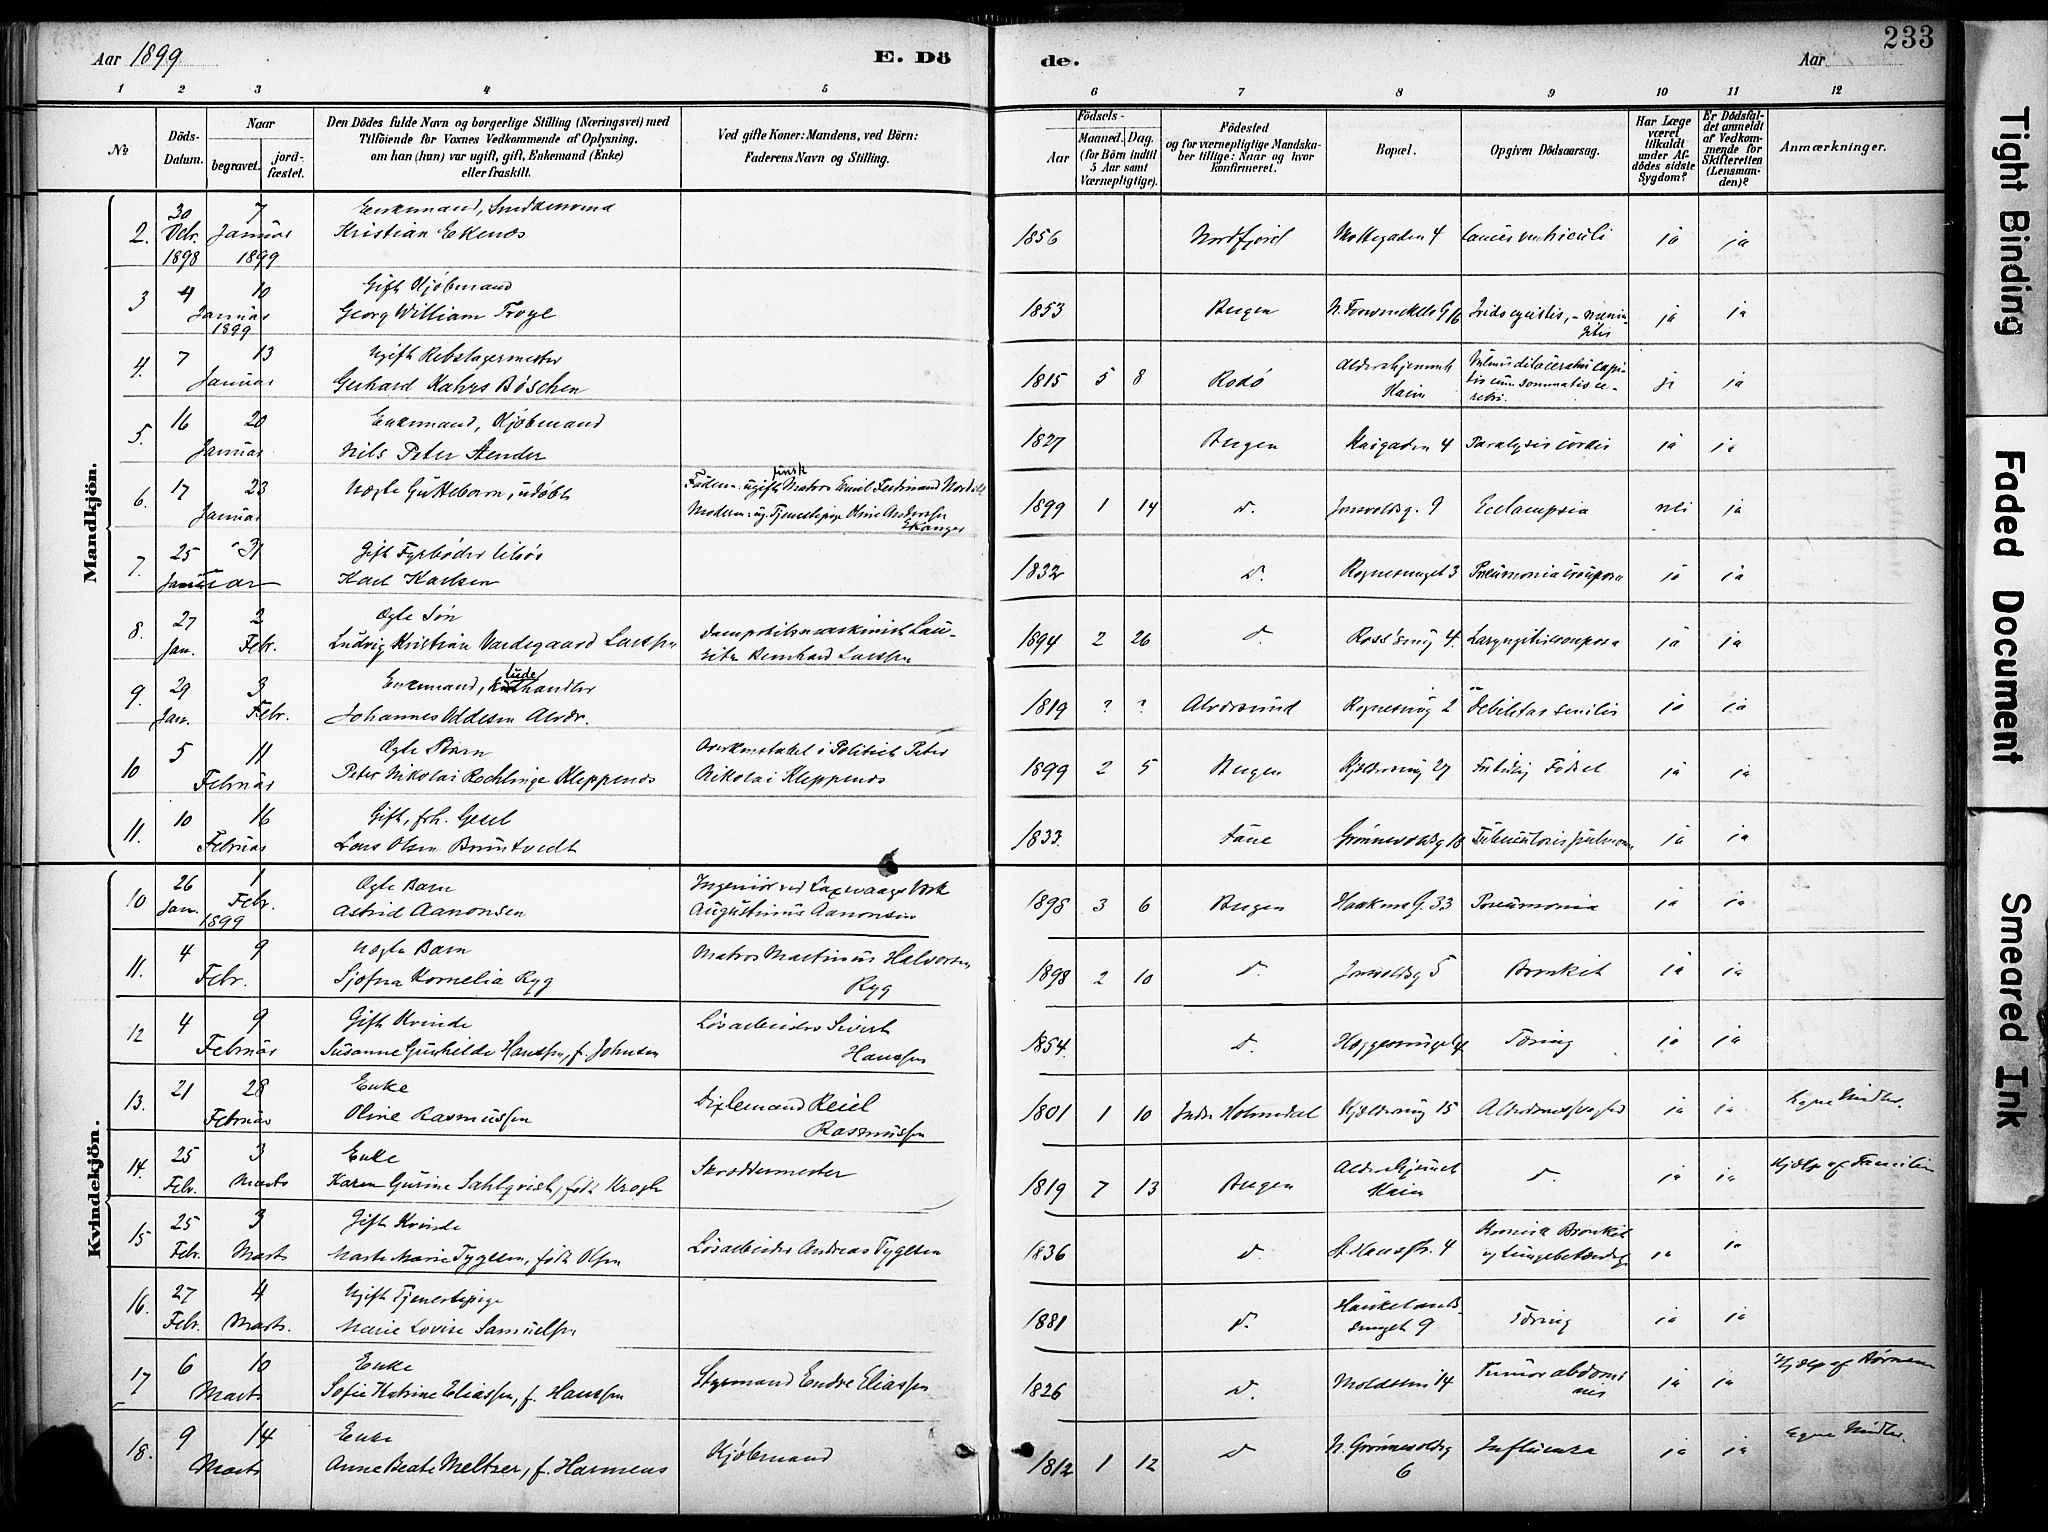 Aar 1899
E. Dö
de.
Aar
233
1 2 3 4 5 6 7 8 9 10 11 12
No.
Döds-Datum.
Naar
begravet.
jord-fæstet.
Den Dödes fulde Navn og borgerlige Stilling (Næringsvei) med
Tilföiende for Voxnes Vedkommende af Oplysning,
om han (hun) var ugift, gift, Enkemand (Enke)
eller fraskilt.
Ved gifte Koner: Mandens, ved Börn:
Faderens Navn og Stilling.
Födsels-
Aar
Maaned. Dag.
(for Börn indtil
5 Aar samt
Værnepligtige).
Födested
og for værnepligtige Mandska-
ber tillige: Naar og hvor
konfirmeret.
Bopæl.
Opgiven Dödsaarsag.
Har Læge
været
tilkaldt
under Af-
dödes sidste
Sygdom?
Er Dödsfal-
det anmeldt
af Vedkom-
mende for
Skifteretten
(Lensman-
den)?
Anmærkninger.
Mandkjön.
2. 30 Dcbr. 1898 7 Januar 1899 Enkemand, Kristian Ekenæs 1856 Nordfjord ja ja
3 4 Januar 1899 10 Gift Kjøbmand Georg William Troye 1853 Bergen ja ja
4. 7 Januar 13 Ugift Rebslagermester Gerhard Kahrs Böschen 1815 5 8 Rodö Aldershjemmet ja ja
5. 16 Januar 20 Enkemand, Kjøbmand Nils Peter Stender 1827 Bergen 4 Paralysis cordis ja ja
6. 17 Januar 23 Uægte Guttebarn, udøbt Faderen: ugift finsk Matros Emil Ferdinand Modern: ug. Tjenestepige Oline Andersen Ekanger 1899 1 14 d. Jonsvoldsg. 9 Eclampsia nei ja
7. 25 Januar 31 Gift Fyrbøder Karl Karlsen 1832 d. 3 Pneumonia crouposa ja ja
8. 27 Jan. 2 Febr. Ægte Søn Ludvig Kristian Vardegaard Larssen Dampskibsmaskinist Lau- ritz Bernhard Larssen 1894 2 26 d. Ross'smug 4. Laryngitis crouposa ja ja
9. 29 Jan. 3 Febr. Enkemand, Kludehandler Johannes Oddesen Alvær. 1819 ? ? Alversund 2 Debilitas senilis ja ja
10 5 Februar 11 Ægte Barn Peter Nikolai Rechlinge Kleppenæs Overkonstabel i Politiet Peter Nikolai Kleppenæs 1899 2 5 Bergen 27 Fortidig Fødsel ja ja
11. 10 Februar 16 Gift, frh. Gesel Lars Olsen Bruntvedt 1833. Fane Grønnevoldsg 18 Tuberculosis pulmonum ja ja
Kvindekjön.
10 26 Jan. 1 Febr. 1899 Ægte Barn Astrid Aanonsen Ingeniør ved Laxevaags Værk Augustinus Aanonsen 1898 3 6 Bergen Haakons G. 33 Pneumonia ja ja
11. 4 Febr. 9 Uægte Barn Sjofna Kornelia Ryg Matros Martinus Halvorsen Ryg 1898 2 10 d. Jonsvoldsg 5 Bronkit ja ja
12 4 Februar 9 Gift Kvinde Susanne Gunhilde Hanssen, f. Johnsen Løsarbeider Sivert Hanssen 1854. d. Tæring ja ja
13. 21 Februar 28 Enke Oline Rasmussen Reiel Rasmussen 1801 1 10 Indre Holmedal 15 Alderdomssvaghed ja ja Egne Midler.
14. 25 Febr. 3 Marts Enke Karen Gurine Sahlqvist, født Krogh Skræddermester 1819 7 13 Bergen Aldershjemmet d. ja ja Hjælp af Familien
15 25 Febr. 3 Marts Gift Kvinde Marte Marie Tygesen, født Olsen Løsarbeider Andreas Tygesen 1836 d St. Hansstr. 4 Kronisk Bronkit og Lungebetændelse ja ja
16. 27 Febr. 4 Marts. Ugift Tjenestepige Marie Lovise Samuelsen 1881 d. Haukelands- smuget 9 Tæring ja ja
17 6 Marts 10 Enke Sofie Katrine Eliassen, f. Hanssen Styrmand Endre Eliassen 1826 d. 14 Tumor abdomi nis ja ja Hjælp af Børnene
18. 9 Marts 14 Enke Anne Beate Meltzer, f. Harmens Kjøbmand 1812 1 12 d N. Grønnevoldsg 6 Influenza ja ja Egne Midler.
Tight Binding
Faded Document
Smeared Ink